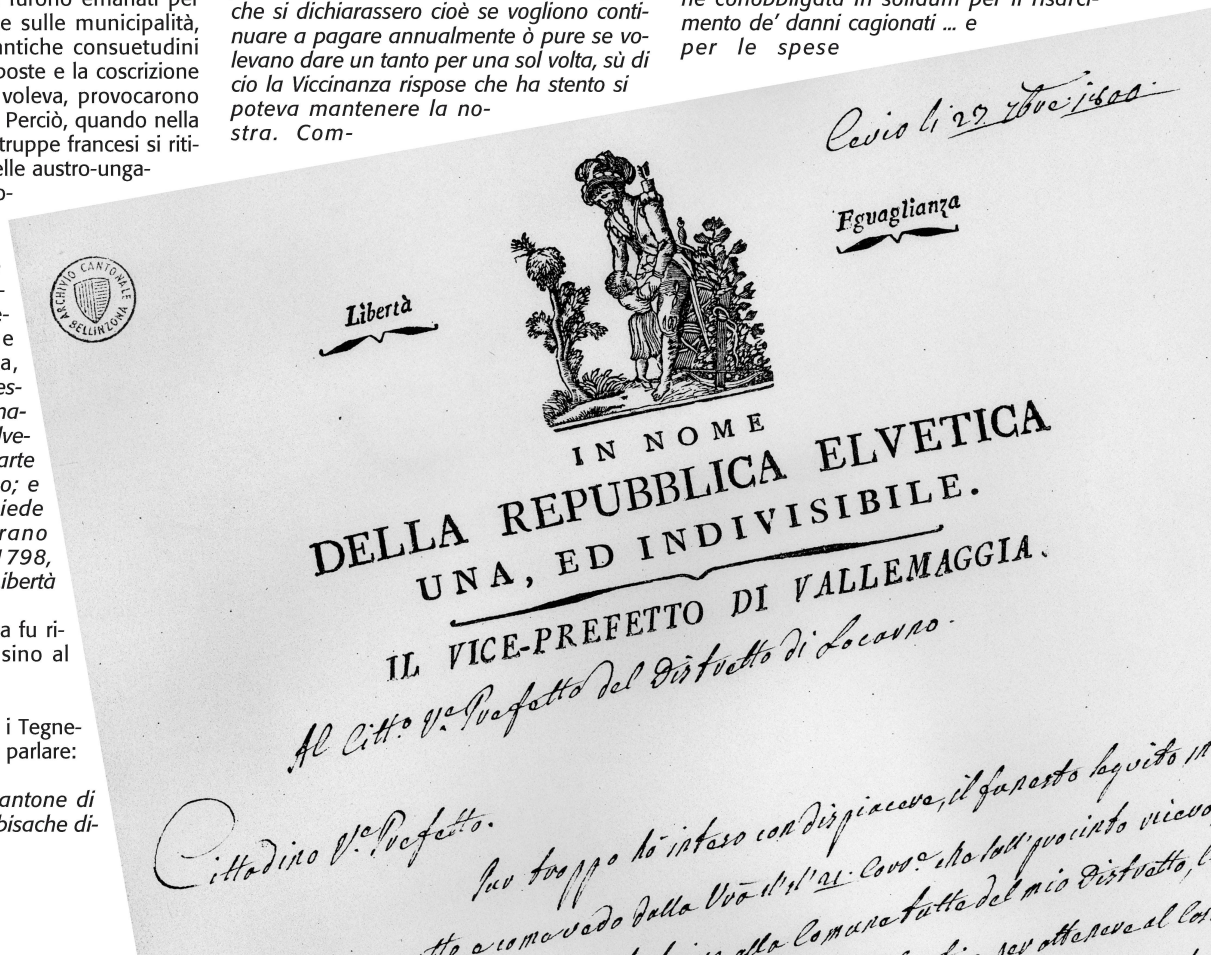 furono emanati per
e sulle municipalità,
antiche consuetudini
poste e la coscrizione
voleva, provocarono
Perciò, quando nella
truppe francesi si riti-
elle austro-unga-
o-
-
e-
e
a,
es-
na-
lve-
arte
o; e
iede
rano
1798,
ibertà
a fu ri-
sino al
i Tegne-
parlare:
antone di
bisache di-
che si dichiarassero cioè se vogliono conti-
nuare a pagare annualmente ò pure se vo-
levano dare un tanto per una sol volta, sù di
cio la Viccinanza rispose che ha stento si
poteva mantenere la no-
stra. Com-
ne conobbligata in solidum per il risarci-
mento de' danni cagionati ... e
per le spese
Cevio li 27. 7bre. 1800.
ARCHIVIO CANTONALE
BELLINZONA
Libertà
Eguaglianza
IN NOME
DELLA REPUBBLICA ELVETICA
UNA, ED INDIVISIBILE.
IL VICE-PREFETTO DI VALLEMAGGIA.
Al Citt.o V.e Prefetto del Distretto di Locarno.
Cittadino V.e Prefetto.
Pur troppo hò inteso con dispiacere, il funesto seguito in
e come vedo dalla 21. Corr.e che
alla Comune tutte del mio Distretto,
per ottenere al